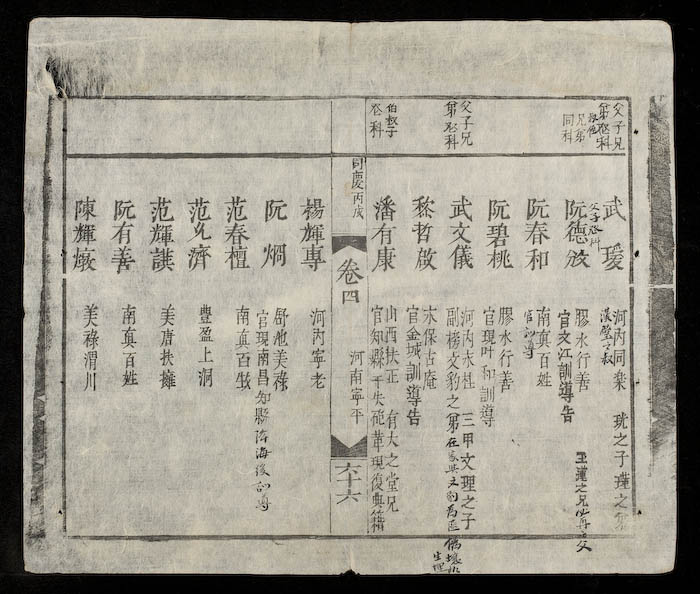 父子兄
第登科
兄弟
同科
武瑗
河内同樂 珖之子瑾之弟
父子登科
阮德
膠水行善
官文江訓導告
阮春和
南真百姓
阮碧桃
膠水行善
官現叶和訓導
父子兄
弟登科
武文儀
河内木杜 三甲文理之子
副榜文豹之弟
黎哲啟
木保古庵
官金城訓導告
伯叔子
登科
潘有康
山西扶正 有大之堂兄
官知縣干失砲革現復典籍
同慶丙戌
卷四
河南寧平
六十六
楊輝專
河内寧老
阮烱
舒池美祿
官現南昌知縣陞海後訓導
范春檀
南真百戟
范允濟
豐盈上洞
范輝謨
美唐扶擁
阮有善
南真百姓
陳輝
美祿渭川